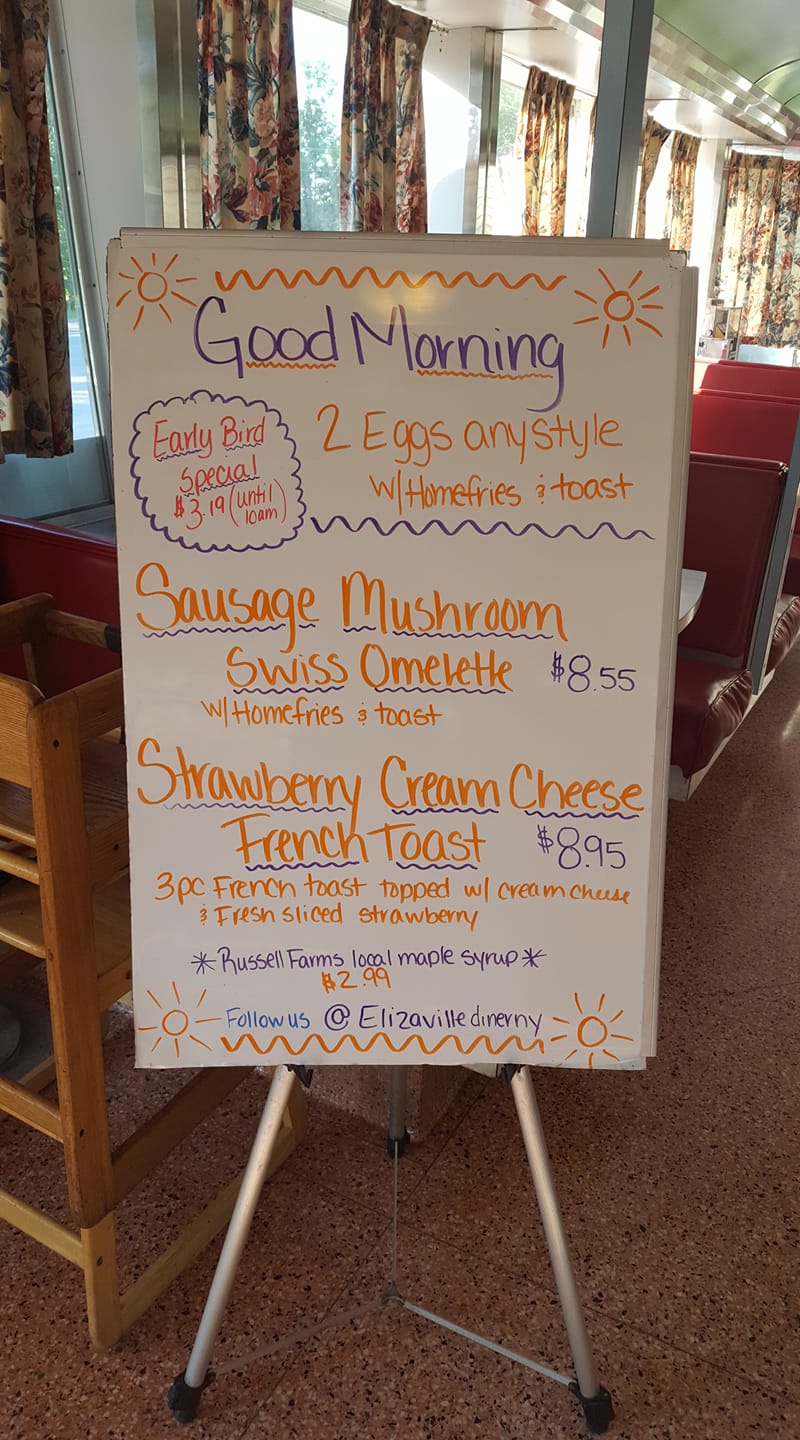 Good Morning
Early Bird
Special
$3.19 (until
10am)
2 Eggs any style
w/ Homefries & toast
Sausage Mushroom
Swiss Omelette $8.55
w/ Homefries & toast
Strawberry Cream Cheese
French Toast $8.95
3pc French toast topped w/ cream cheese
& Fresh sliced strawberry
*Russell Farms local maple syrup*
$2.99
Follow us @ Elizaville dinerny